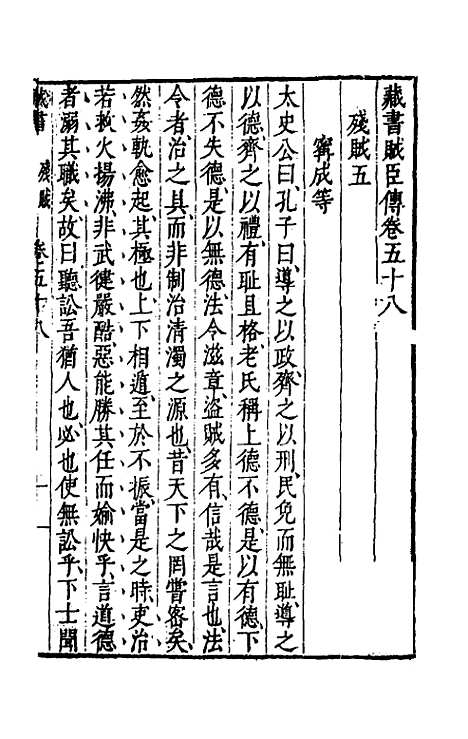 藏書賊臣傳卷五十八
殘賊五
甯成等
太史公曰、孔子曰、導之以政、齊之以刑、民免而無耻、導之
以德、齊之以禮、有耻且格、老氏稱上德不德、是以有德、下
德不失德、是以無德、法令滋章、盜賊多有、信哉是言也、法
令者、治之具、而非制治清濁之源也、昔天下之罔嘗密矣、
然姦軌愈起、其極也、上下相遁、至於不振、當是之時、吏治
若救火揚沸、非武健嚴酷、惡能勝其任而媮快乎、言道德
者溺其職矣、故曰聽訟吾猶人也、必也使無訟乎、下士聞
藏書 殘賊 卷五十八 一